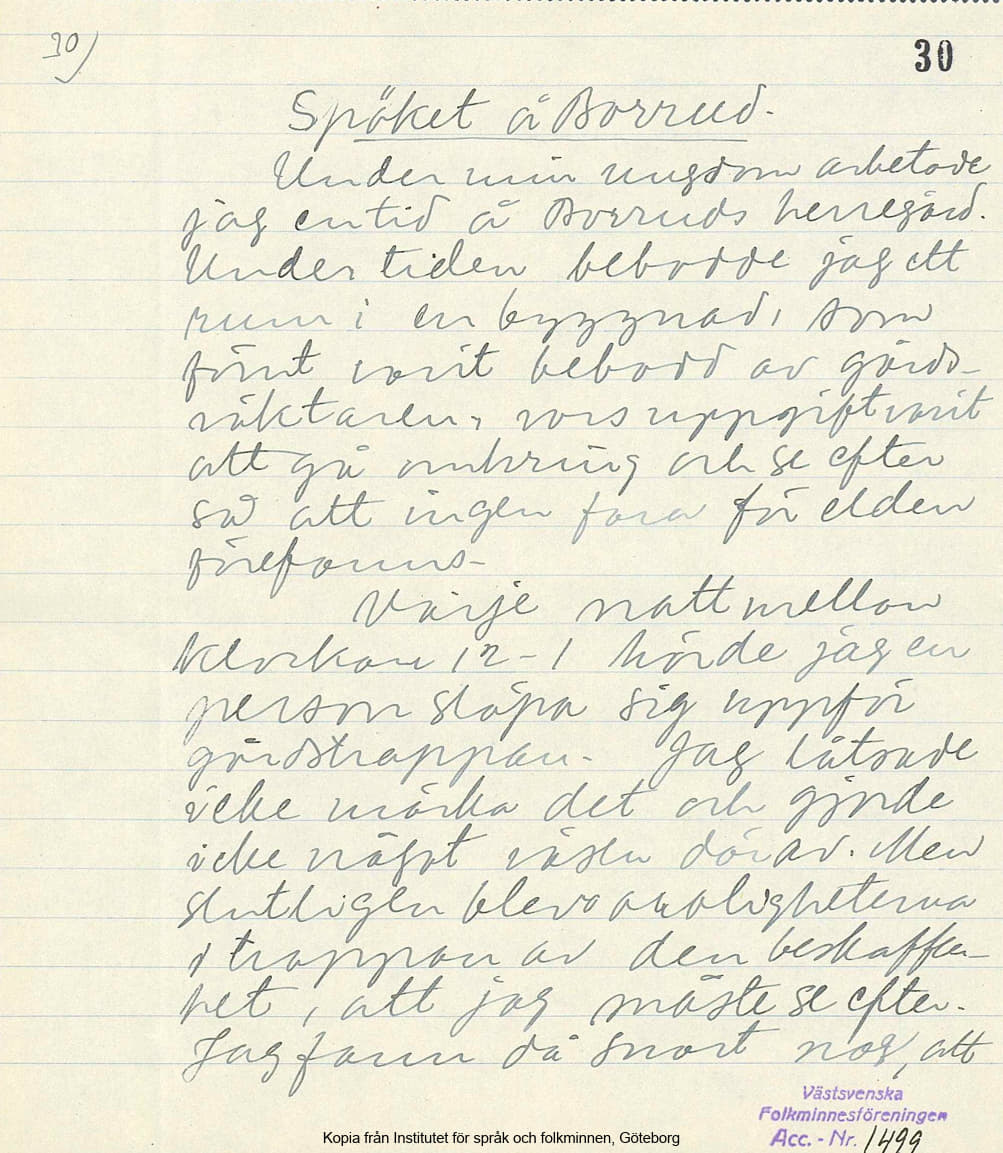 30)
30
Spöket å Borrud.
Under min ungdom arbetade
jag en tid å Borruds herregård.
Under tiden bebodde jag ett
rum i en byggnad, som
förut varit bebodd av gårds-
väktaren, vars uppgift varit
att gå omkring och se efter
så att ingen fara för elden
förefanns.
Varje natt mellan
klockan 12-1 hörde jag en
person släpa sig uppför
gårdstrappan. Jag låtsade
icke märka det och gjorde
icke något väsen därav. Men
slutligen blevo oroligheterna
i trappan av den beskaffen-
het, att jag måste se efter.
Jag fann då snart nog, att
Västsvenska
Folkminnesföreningen
Acc. - Nr. 1499
Kopia från Institutet för språk och folkminnen, Göteborg